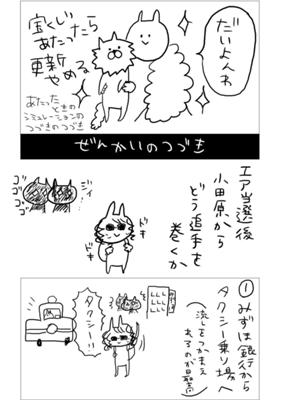 宝くじ
あたったら
更新
やめる
あたった
ときの
シミュレーションの
つづきのつづき
だいよんわ
ぜんかいのつづき
エア当選後
小田原から
どう追手を
巻くか
ジィー
ゴゴゴ
ゴゴゴ
ドキ
ドキ
①みずほ銀行から
タクシー乗り場へ
(流しをつかまえ
れるのが最高)
タクシー!!